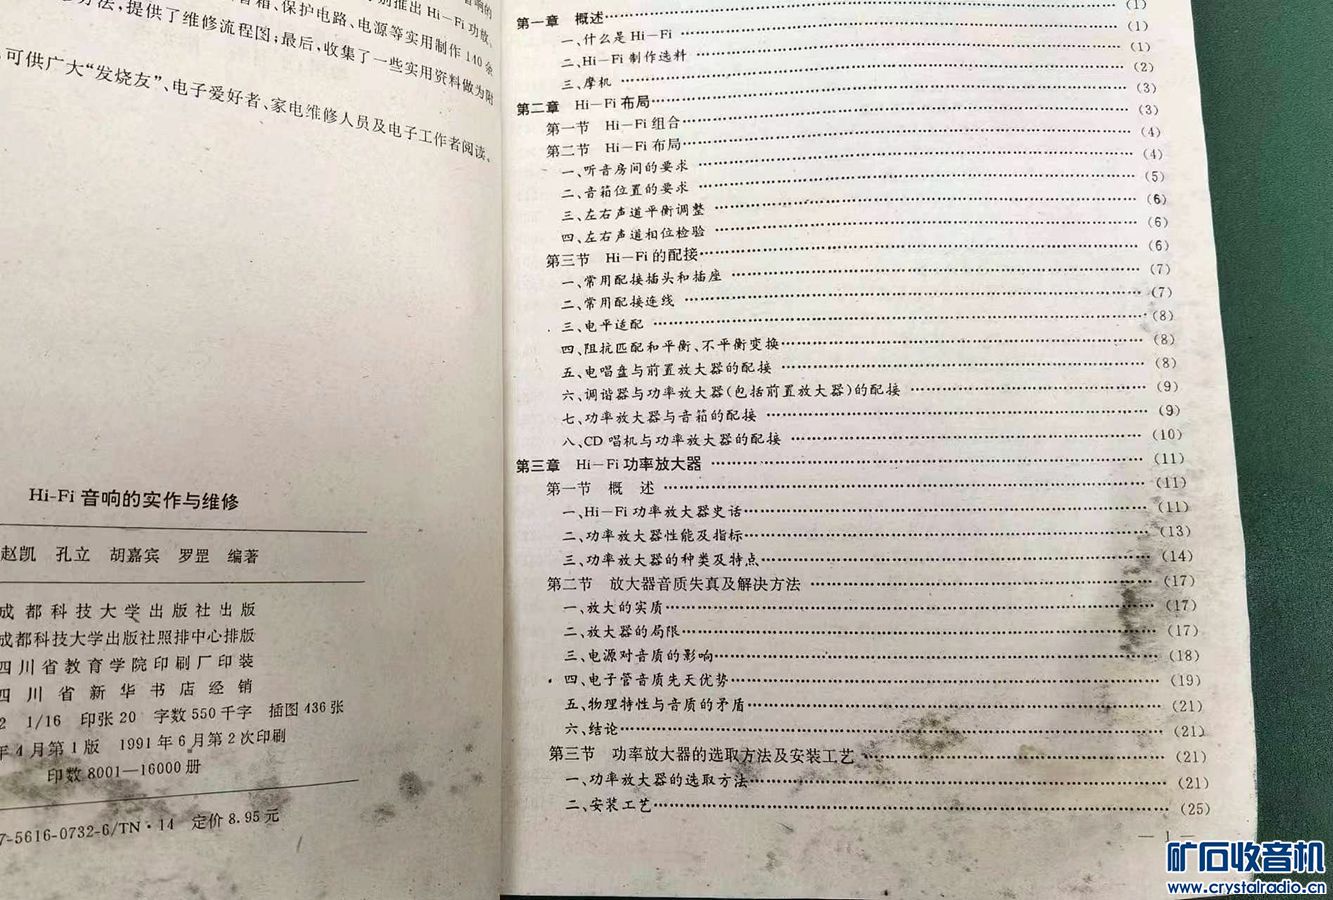 音响的
别推出 Hi－Fi 功放、
音箱、保护电路、电源等实用制作 140 余
方法,提供了维修流程图;最后,收集了一些实用资料做为附
可供广大“发烧友”、电子爱好者、家电维修人员及电子工作者阅读。
Hi-Fi 音响的实作与维修
赵凯 孔立 胡嘉宾 罗罡 编著
成都科技大学出版社出版
成都科技大学出版社照排中心排版
四川省教育学院印刷厂印装
四川省新华书店经销
2 1/16 印张 20 字数 550 千字 插图 436 张
年 4 月第 1 版 1991 年 6 月第 2 次印刷
印数 8001—16000 册
7-5616-0732-6/TN·14 定价 8.95 元
第一章 概述 (1)
一、什么是 Hi－Fi (1)
二、Hi－Fi 制作选料 (1)
三、摩机 (2)
第二章 Hi－Fi 布局 (3)
第一节 Hi－Fi 组合 (3)
第二节 Hi－Fi 布局 (4)
一、听音房间的要求 (4)
二、音箱位置的要求 (5)
三、左右声道平衡调整 (6)
四、左右声道相位检验 (6)
第三节 Hi－Fi 的配接 (6)
一、常用配接插头和插座 (7)
二、常用配接连线 (7)
三、电平适配 (8)
四、阻抗匹配和平衡、不平衡变换 (8)
五、电唱盘与前置放大器的配接 (8)
六、调谐器与功率放大器(包括前置放大器)的配接 (9)
七、功率放大器与音箱的配接 (9)
八、CD 唱机与功率放大器的配接 (10)
第三章 Hi－Fi 功率放大器 (11)
第一节 概 述 (11)
一、Hi－Fi 功率放大器史话 (11)
二、功率放大器性能及指标 (13)
三、功率放大器的种类及特点 (14)
第二节 放大器音质失真及解决方法 (17)
一、放大的实质 (17)
二、放大器的局限 (17)
三、电源对音质的影响 (18)
四、电子管音质先天优势 (19)
五、物理特性与音质的矛盾 (21)
六、结论 (21)
第三节 功率放大器的选取方法及安装工艺 (21)
一、功率放大器的选取方法 (21)
二、安装工艺 (25)
— 1 —
矿石收音机
www.crystalradio.cn